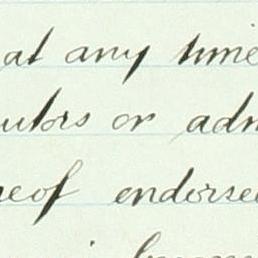 at any time
utors or adm
eof endorsed